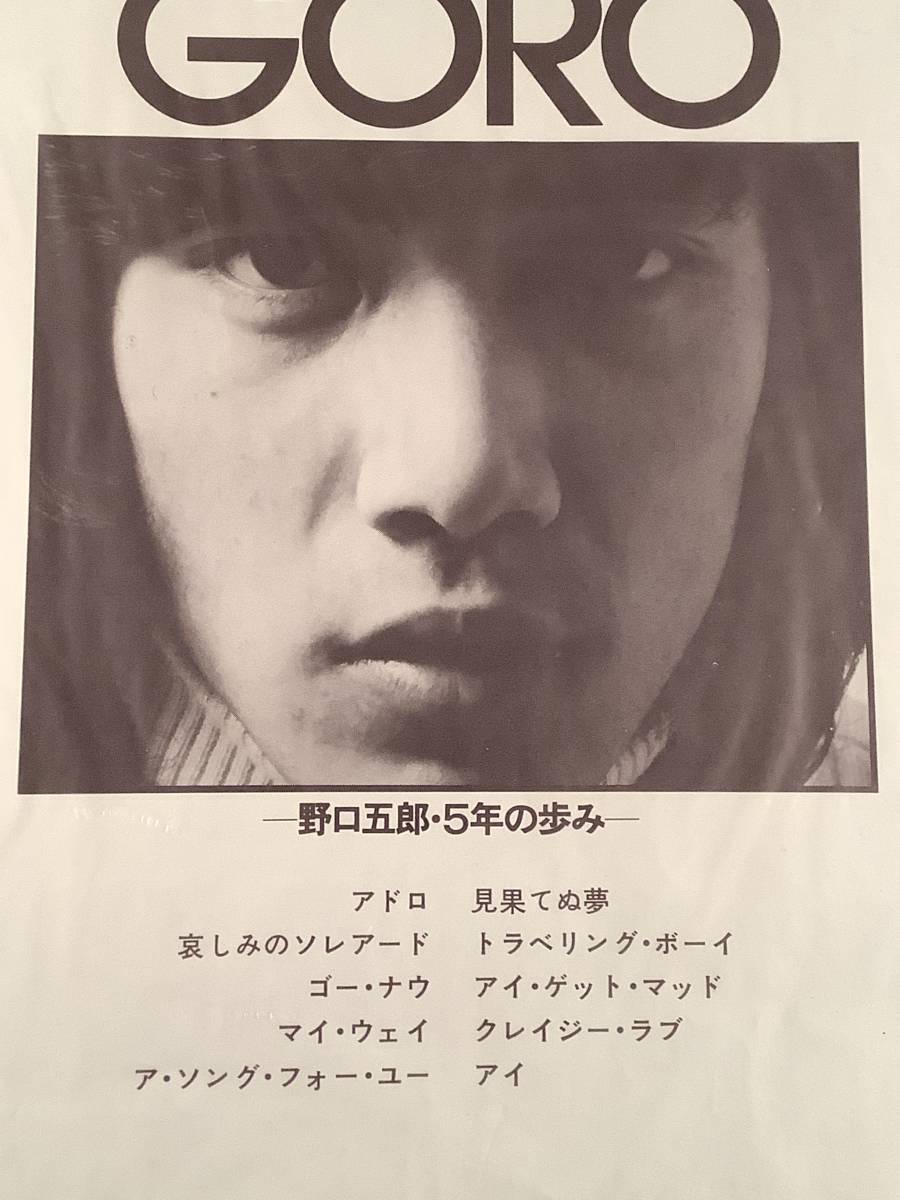 GORO
—野口五郎・5年の歩み—
アドロ
哀しみのソレアード
ゴー・ナウ
マイ・ウェイ
ア・ソング・フォー・ユー
見果てぬ夢
トラベリング・ボーイ
アイ・ゲット・マッド
クレイジー・ラブ
アイ